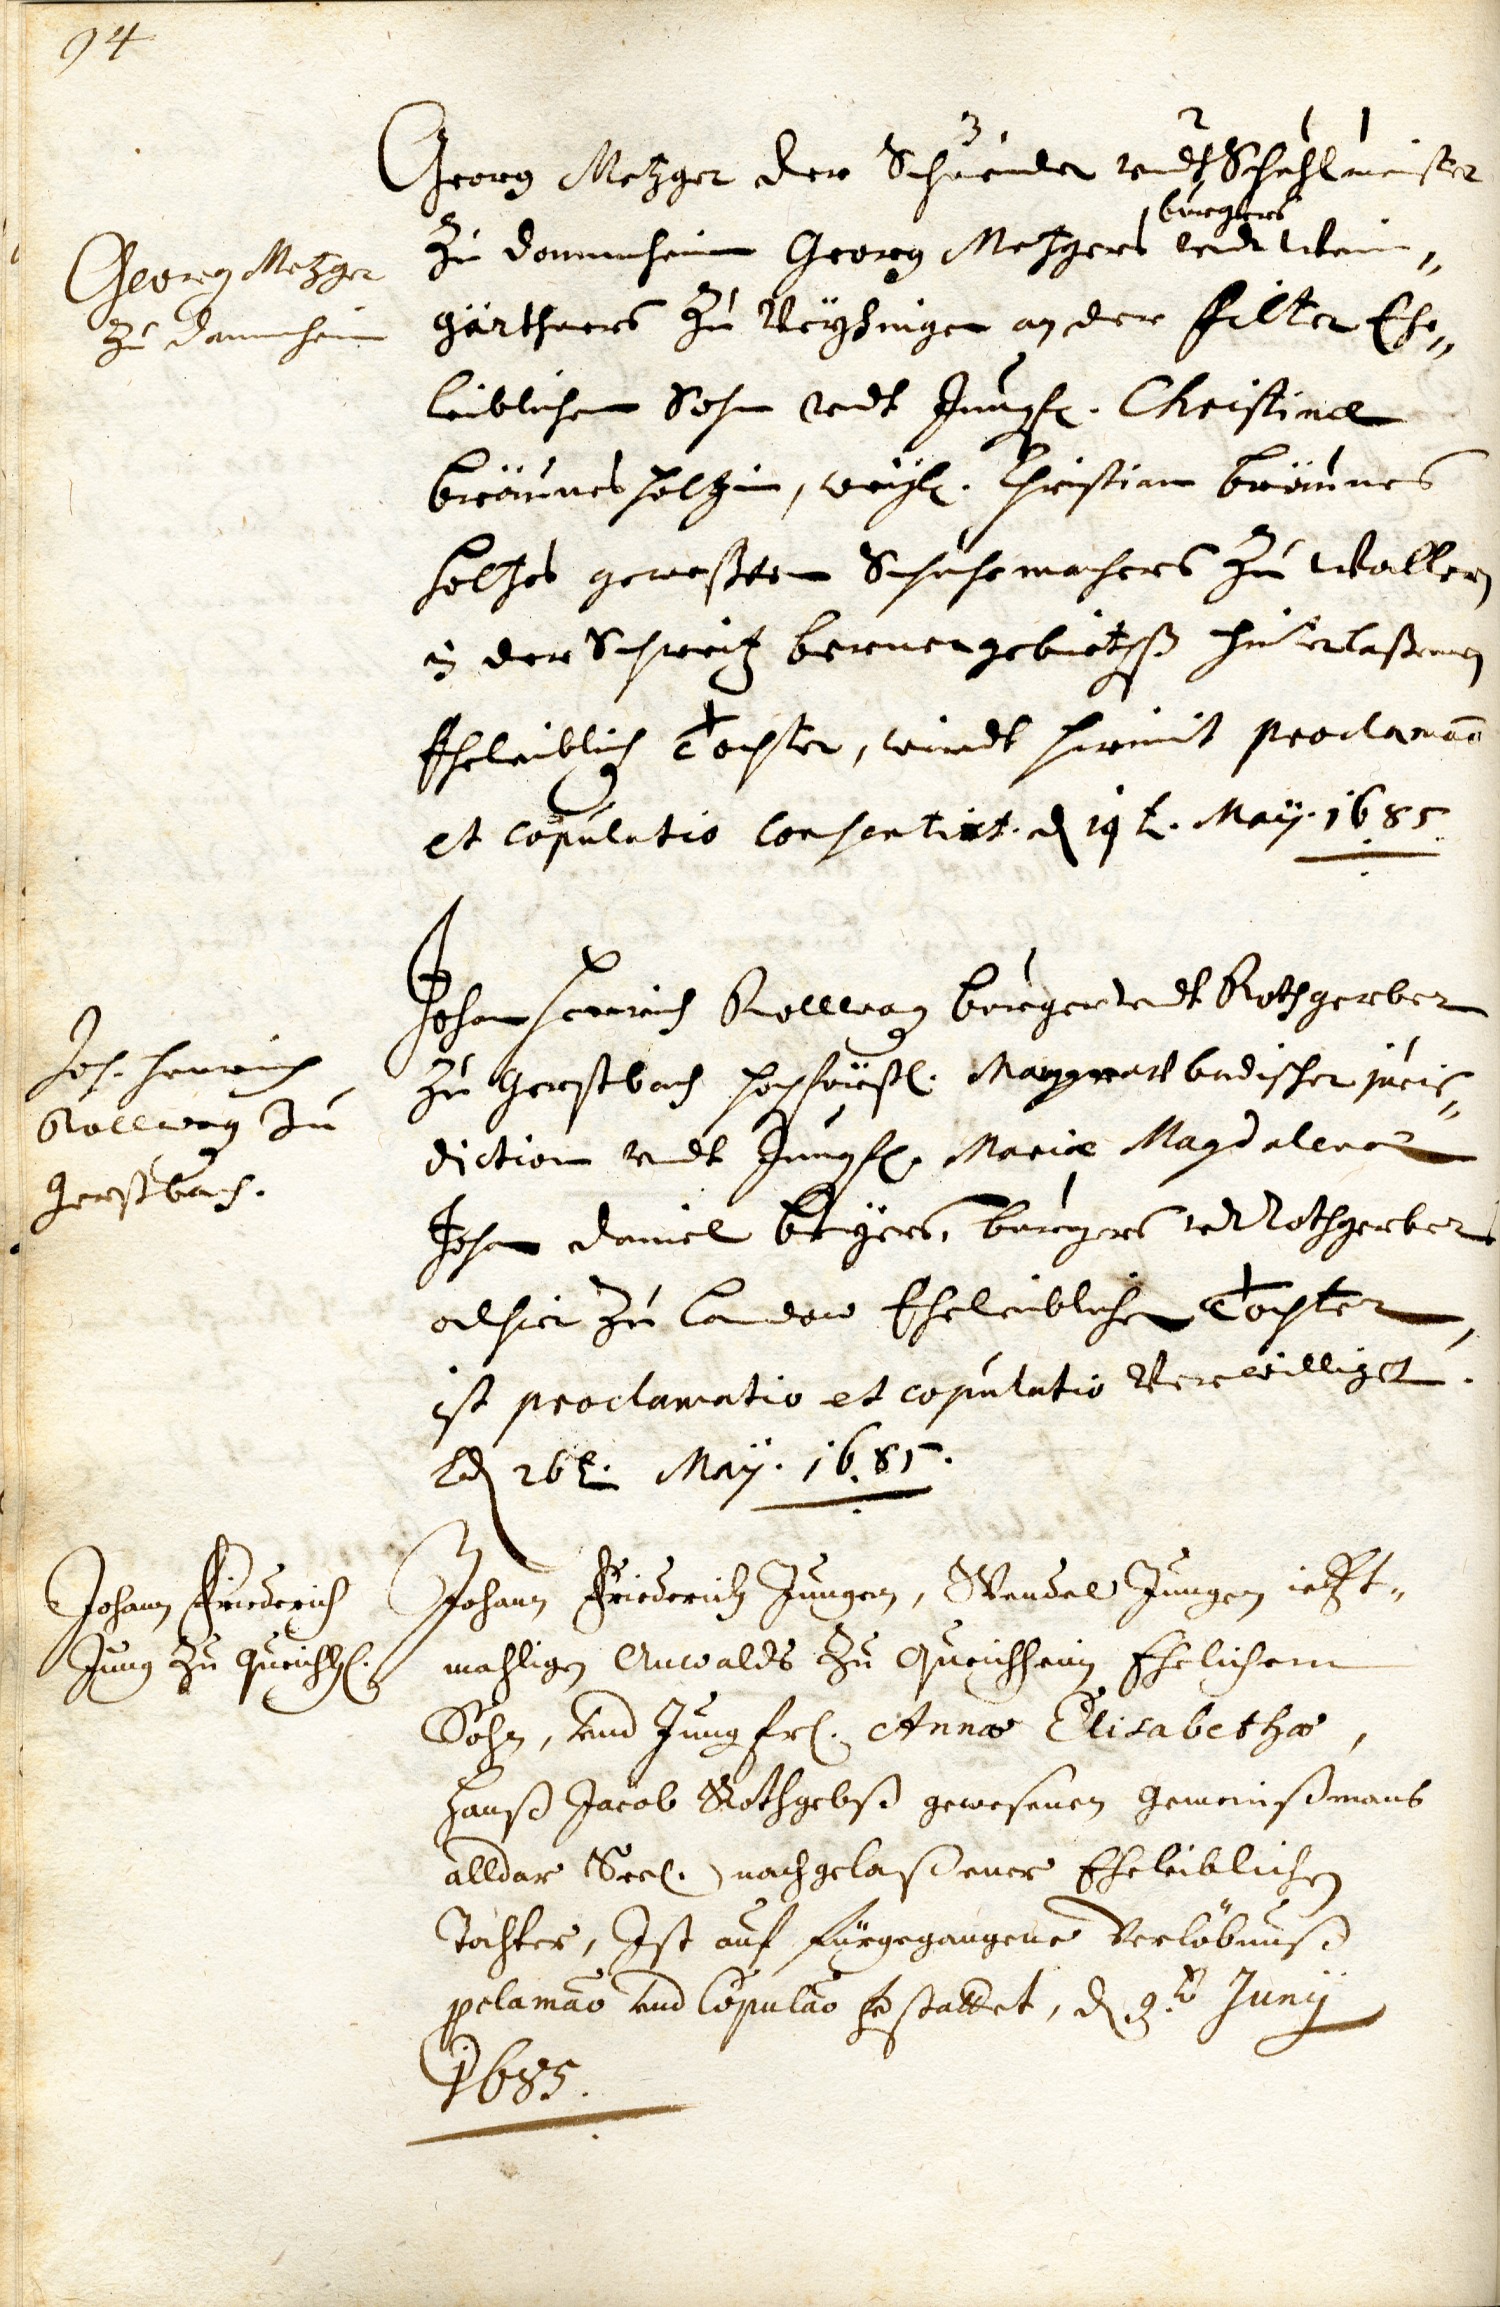 94
Georg Metzger
zu Dammheim
Georg Metzger der Schneider undt Schuhlmeister
3 2 1
burgers
zu Dammheim Georg Metzgers undt Wein„
gärthners zu Veyhingen an der Filter Ehe„
leiblichen Sohn undt Jungfr. Christinae
Bräunesholtzin, weyl. Christian Bräunes
holtzes geweßten Schuhemachers zu Wallern
in der Schweitz Berner gebieths hinterlaßenen
Eheleiblich Tochter, wirdt hiermit proclamaõ
et copulatio consentirt. d 19 t. Maÿ. 1685
Joh. Henrich
Rollwag zu
Gerstbach.
Johan Henrich Rollwag burger undt Rothgerber
zu Gerstbach hochfürstl. Marggrav badischer juris„
diction undt Jungfr. Mariae Magdalenae
Johan Daniel Beÿers, burgers undt Rothgerbers
alhier zu Landaw Eheleiblichen Tochter,
ist proclamatio et copulatio Verwilliget.
Ld 26 t. Maÿ. 1685.
Johann Friederich
Jung zu Queichh.
Johann Friederich Jungen, Wendel Jungen ietzt„
mahligen Anwalds zu Queichheim Ehelichem
Sohn, und Jungfr. Annae Elisabethae,
Hanß Jacob Rothgebß gewesenen Gemeinßmans
alldar Seel. nachgelaßener Eheleiblichen
Tochter, Ist auf fürgegangene Verlöbnuß
pclamaõ und Copulaõ gestattet, d 9.t Junÿ
1685.